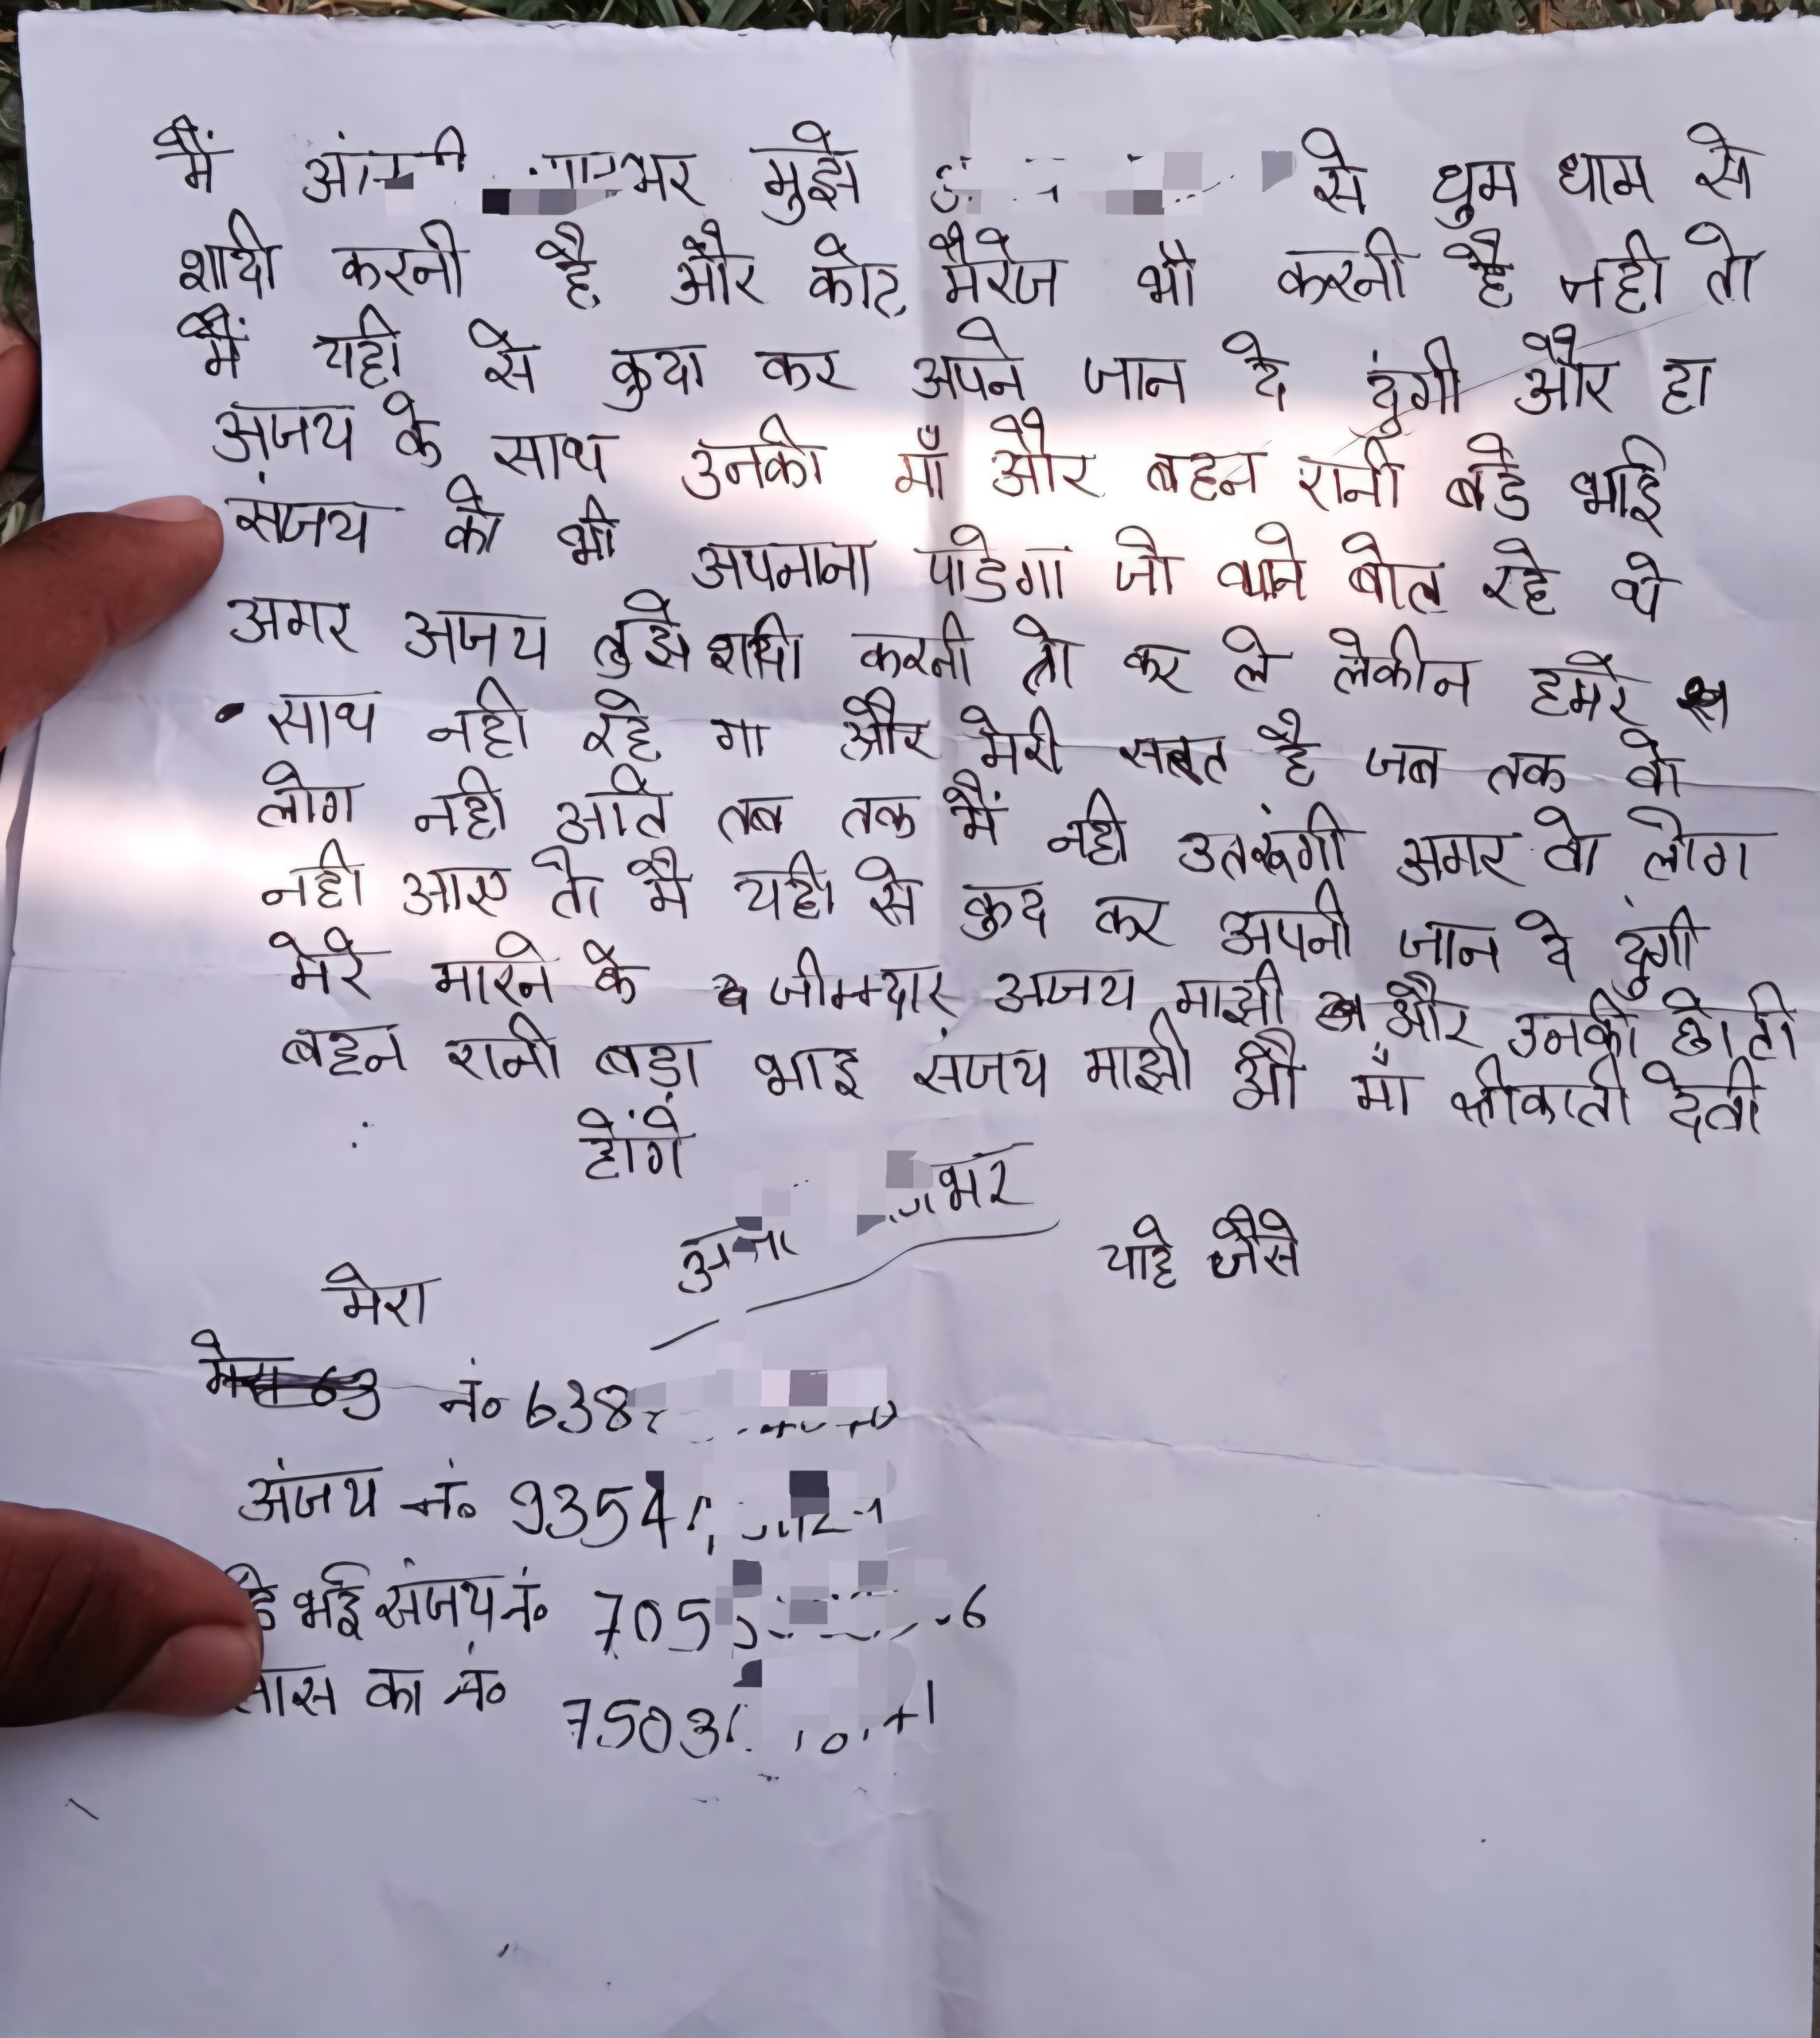 मैं मुझे से धुम धाम से
शादी करनी है और कोट मैरेज भी करनी है नही तो
मैं यही से कुदा कर अपने जान दे दुंगी और हा
अजय के साथ उनकी माँ और बहन रानी बडे भाई
संजय को भी अपनाना पडेगा जो बोल रहे थे
अगर अजय तुझे शादी करनी तो कर ले लेकीन हमरे
साथ नही रहे गा और मेरी है जब तक वो
लोग नही आते तब तक मैं नही उतरूंगी अगर वो लोग
नही आए तो मै यही से कुद कर अपनी जान दे दुंगी
मेरे मारने के जीम्मदार अजय माझी और उनकी छोटी
बहन रानी बड़ा भाइ संजय माझी औ माँ देवी
होंगे
चाहे जैसे
मेरा
नं० 638
अंजय नं० 9354
भई संजय नं० 705 6
का नं० 7503